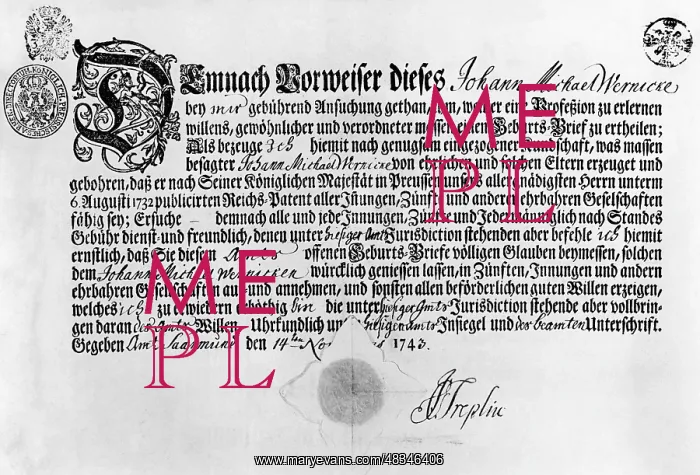 Demnach Vorweiser dieses Johann Michael Wernicke
bey mir gebührend Ansuchung gethan, ihm, weil er eine Profeßion zu erlernen
willens, gewöhnlicher und verordneter massen seinen Geburts-Brief zu ertheilen;
Als bezeuge Ich hiemit nach genugsam eingezogener Kundschaft, was massen
besagter Johann Michael Wernicke von ehrlichen und frommen Eltern erzeuget und
gebohren, daß er nach Seiner Königlichen Majestät in Preussen unsers allergnädigsten Herrn unterm
6. Augusti 1732 publicirten Reichs-Patent aller Innungen, Zünfte und andern ehrbahren Gesellschaften
fähig sey; Ersuche – demnach alle und jede Innungen, Zünfte und Jedermänniglich nach Standes
Gebühr dienst- und freundlich, denen unter hiesiger Amts Jurisdiction stehenden aber befehle ich hiemit
ernstlich, daß Sie diesen offenen Geburts-Briefe völligen Glauben beymessen, solchen
dem Johann Michael Wernicken würcklich geniessen lassen, in Zünften, Innungen und andern
ehrbahren Gesellschaften auf- und annehmen, und sonsten allen beförderlichen guten Willen erzeigen,
welches ich zu erwiedern erböthig bin die unter hiesiger Amts Jurisdiction stehende aber vollbrin-
gen daran Willen. Uhrkundlich unter hiesigen Amts Insiegel und des Beamten Unterschrift.
Gegeben Amt Saarmund den 14ten Novembris 1743.
Treplin
ME
PL
ME
PL
www.maryevans.com/48346406